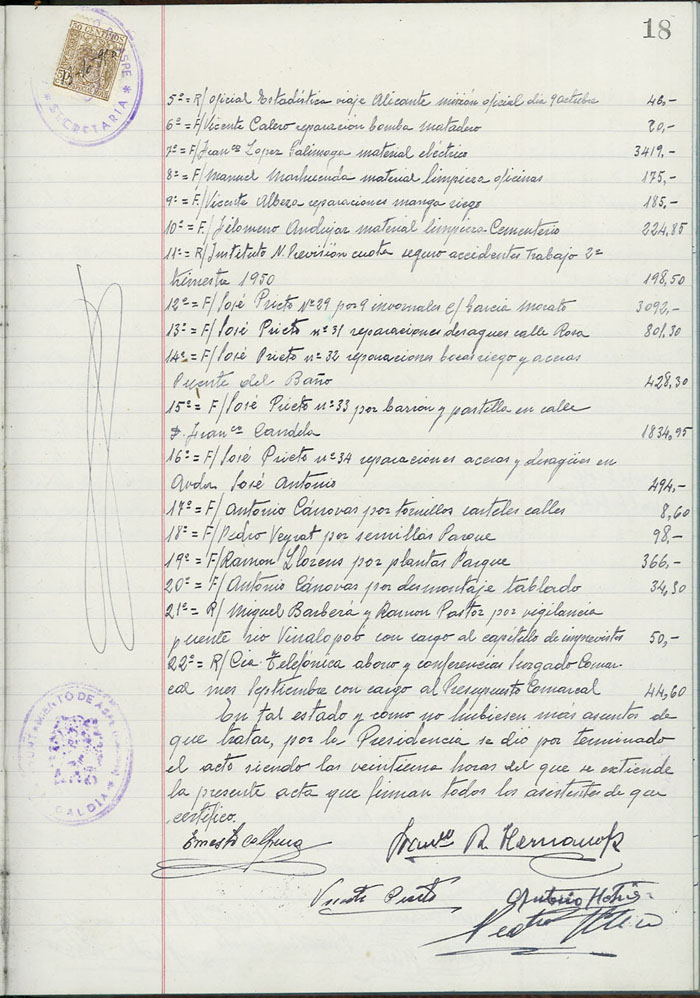 18
50 CENTIMOS
ASPE
* SECRETARIA *
5º= R/ oficial Estadística viaje Alicante misión oficial dia 9 octubre 40,-
6º= F/ Vicente Calero reparación bomba matadero 20,-
7º= F/ Franco Lopez material eléctrico 3419,-
8º= F/ Manuel material limpieza oficinas 175,-
9º= F/ Vicente Albeza reparaciones manga riego 185,-
10º= F/ Filomeno Andujar material limpieza Cementerio 224,85
11º= R/ Instituto N. Previsión cuota seguro accidentes Trabajo 2º
trimestre 1950 198,50
12º= F/ José Prieto nº 29 por 9 C/ Garcia Morato 3092,-
13º= F/ José Prieto nº 31 reparaciones desagues calle Rosa 801,30
14º= F/ José Prieto nº 32 reparaciones bocas riego y aceras
Puente del Baño 428,30
15º= F/ José Prieto nº 33 por y en calle
D. Franco Candela 1834,95
16º= F/ José Prieto nº 34 reparaciones aceras y desagües en
Avda José Antonio 494,-
17º= F/ Antonio Cánovas por tornillos carteles calles 8,60
18º= F/ Pedro Veyrat por semillas Parque 98,-
19º= F/ Ramon Llorens por plantas Parque 366,-
20º= F/ Antonio Cánovas por desmontaje tablado 34,30
21º= R/ Miguel Barberá y Ramon Pastor por vigilancia
puente rio Vinalopob con cargo al capítulo de imprevistos 50,-
22º= R/ Cia. Telefónica abono y conferencias Juzgado Comar
cal mes Septiembre con cargo al Presupuesto Comarcal 44,60
En tal estado y como no hubiesen más asuntos de
que tratar, por la Presidencia se dió por terminado
el acto siendo las veintiuna horas del que se extiende
la presente acta que firman todos los asistentes de que
certifico.
AYUNTAMIENTO DE ASPE
ALCALDIA
Ernesto
R. Hernandez
Vicente Prieto
Antonio
Pedro